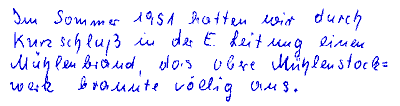 Im Sommer 1951 hatten wir durch
Kurzschluß in der E. Leitung einen
Mühlenbrand, das obere Mühlenstock=
werk brannte völlig aus.